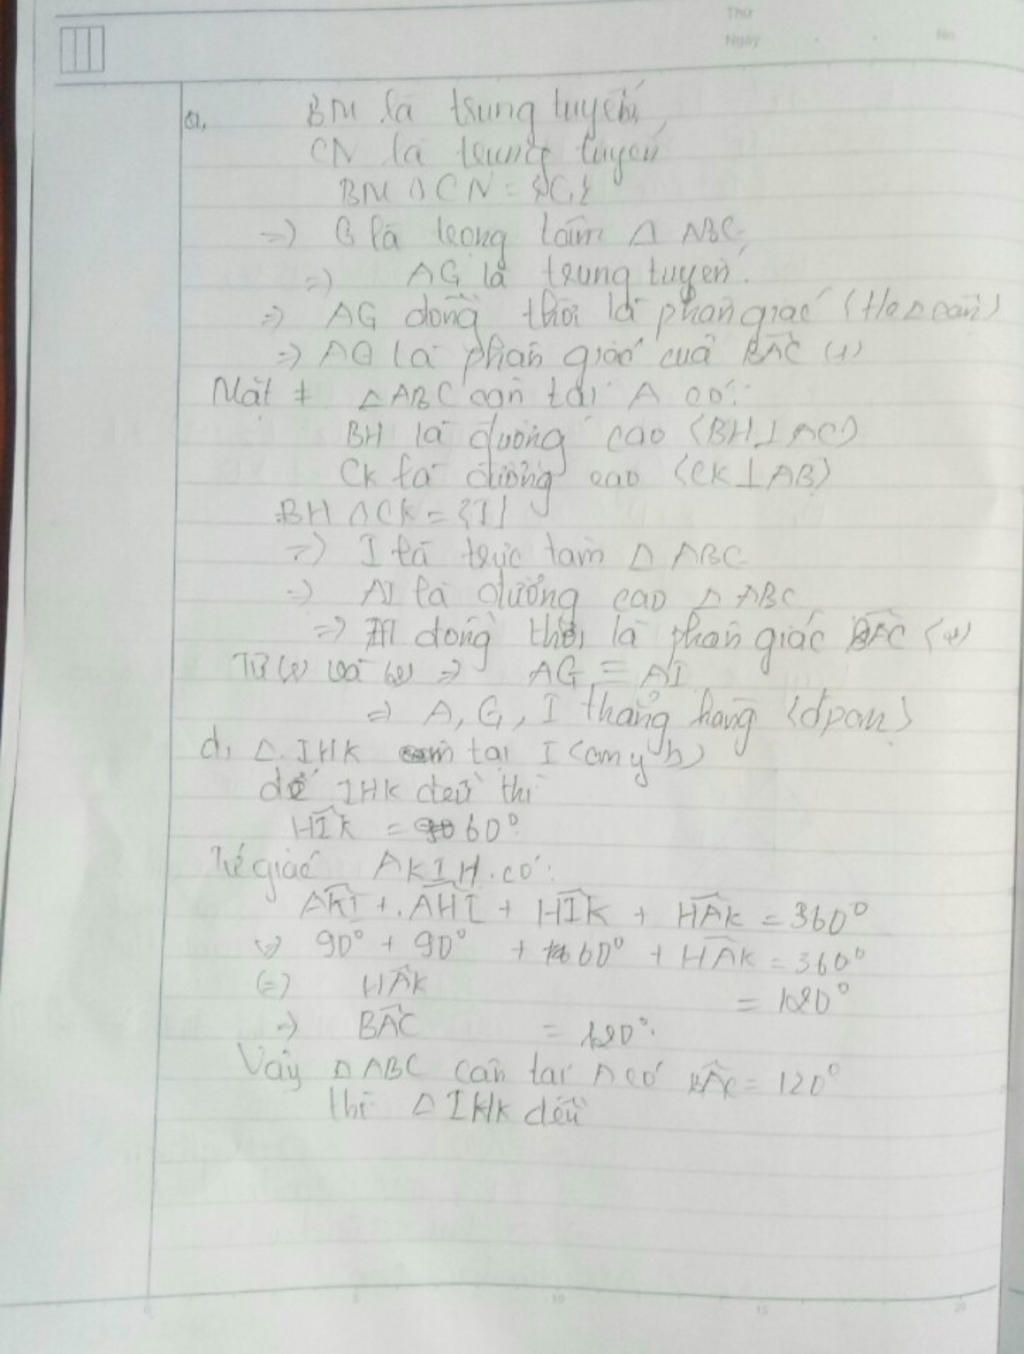 Thứ
Ngày . . No
a, BM là trung tuyến
CN là trung tuyến
BM ∩ CN = {G}
=> G là trọng tâm Δ ABC
=> AG là trung tuyến.
=> AG đồng thời là phân giác (t/c Δ cân)
=> AG là phân giác của BAC (1)
Mặt ≠ ΔABC cân tại A có:
BH là đường cao (BH⊥AC)
CK là đường cao (CK⊥AB)
BH ∩ CK = {I}
=> I là trực tâm Δ ABC
=> AI là đường cao Δ ABC
=> AI đồng thời là phân giác BAC (2)
Từ (1) và (2) => AG ≡ AI
=> A, G, I thẳng hàng (đpcm)
d, Δ IHK cân tại I (cm ý b)
để IHK đều thì
HIK = 60°
Tứ giác AKIH có:
AKI + AHI + HIK + HAK = 360°
<=> 90° + 90° + 60° + HAK = 360°
<=> HAK = 120°
=> BAC = 120°.
Vậy Δ ABC cân tại A có BAC = 120°
thì Δ IHK đều
0 5 10 15 20